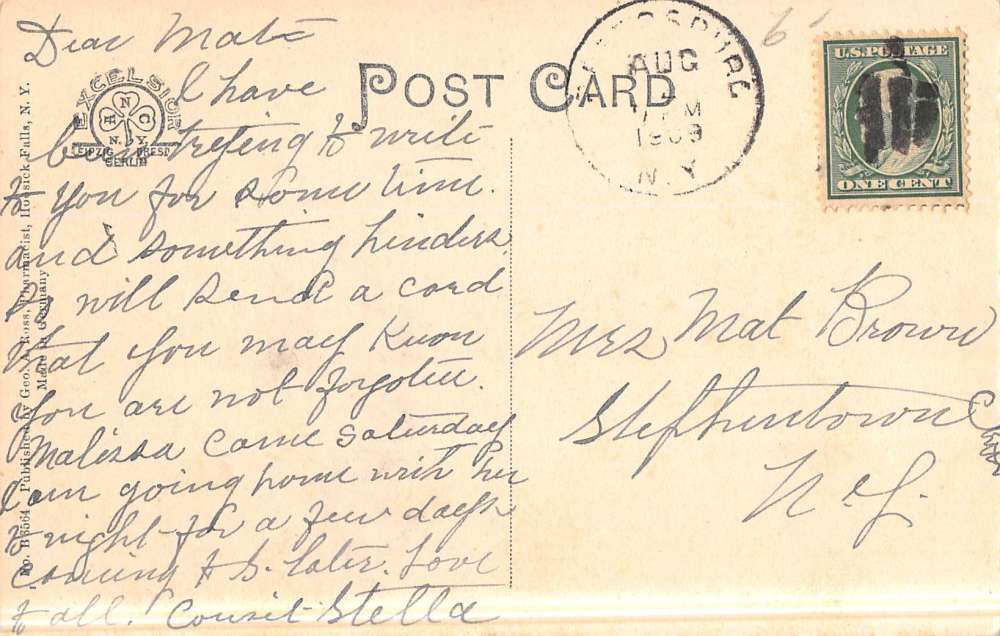 Dear Mate
I have
been trying to write
to you for some time.
and something hinders
so will send a card
that you may know
you are not forgoten.
Malissa came saturday
I am going home with her
to night for a few days
coming to S. later. Love
to all. Cousit Stella
POST CARD
EXCELSIOR
N
A C
N.Y.
LEIPZIG DRESD
BERLIN
No. B 3564 Published by Geo. A. Ross, Pharmacist, Hoosick Falls, N. Y.
Made in Germany
AUG
M
1909
N.Y
U.S. POSTAGE
ONE CENT
6
Mrs Mat Brown
Stephentown
N.Y.